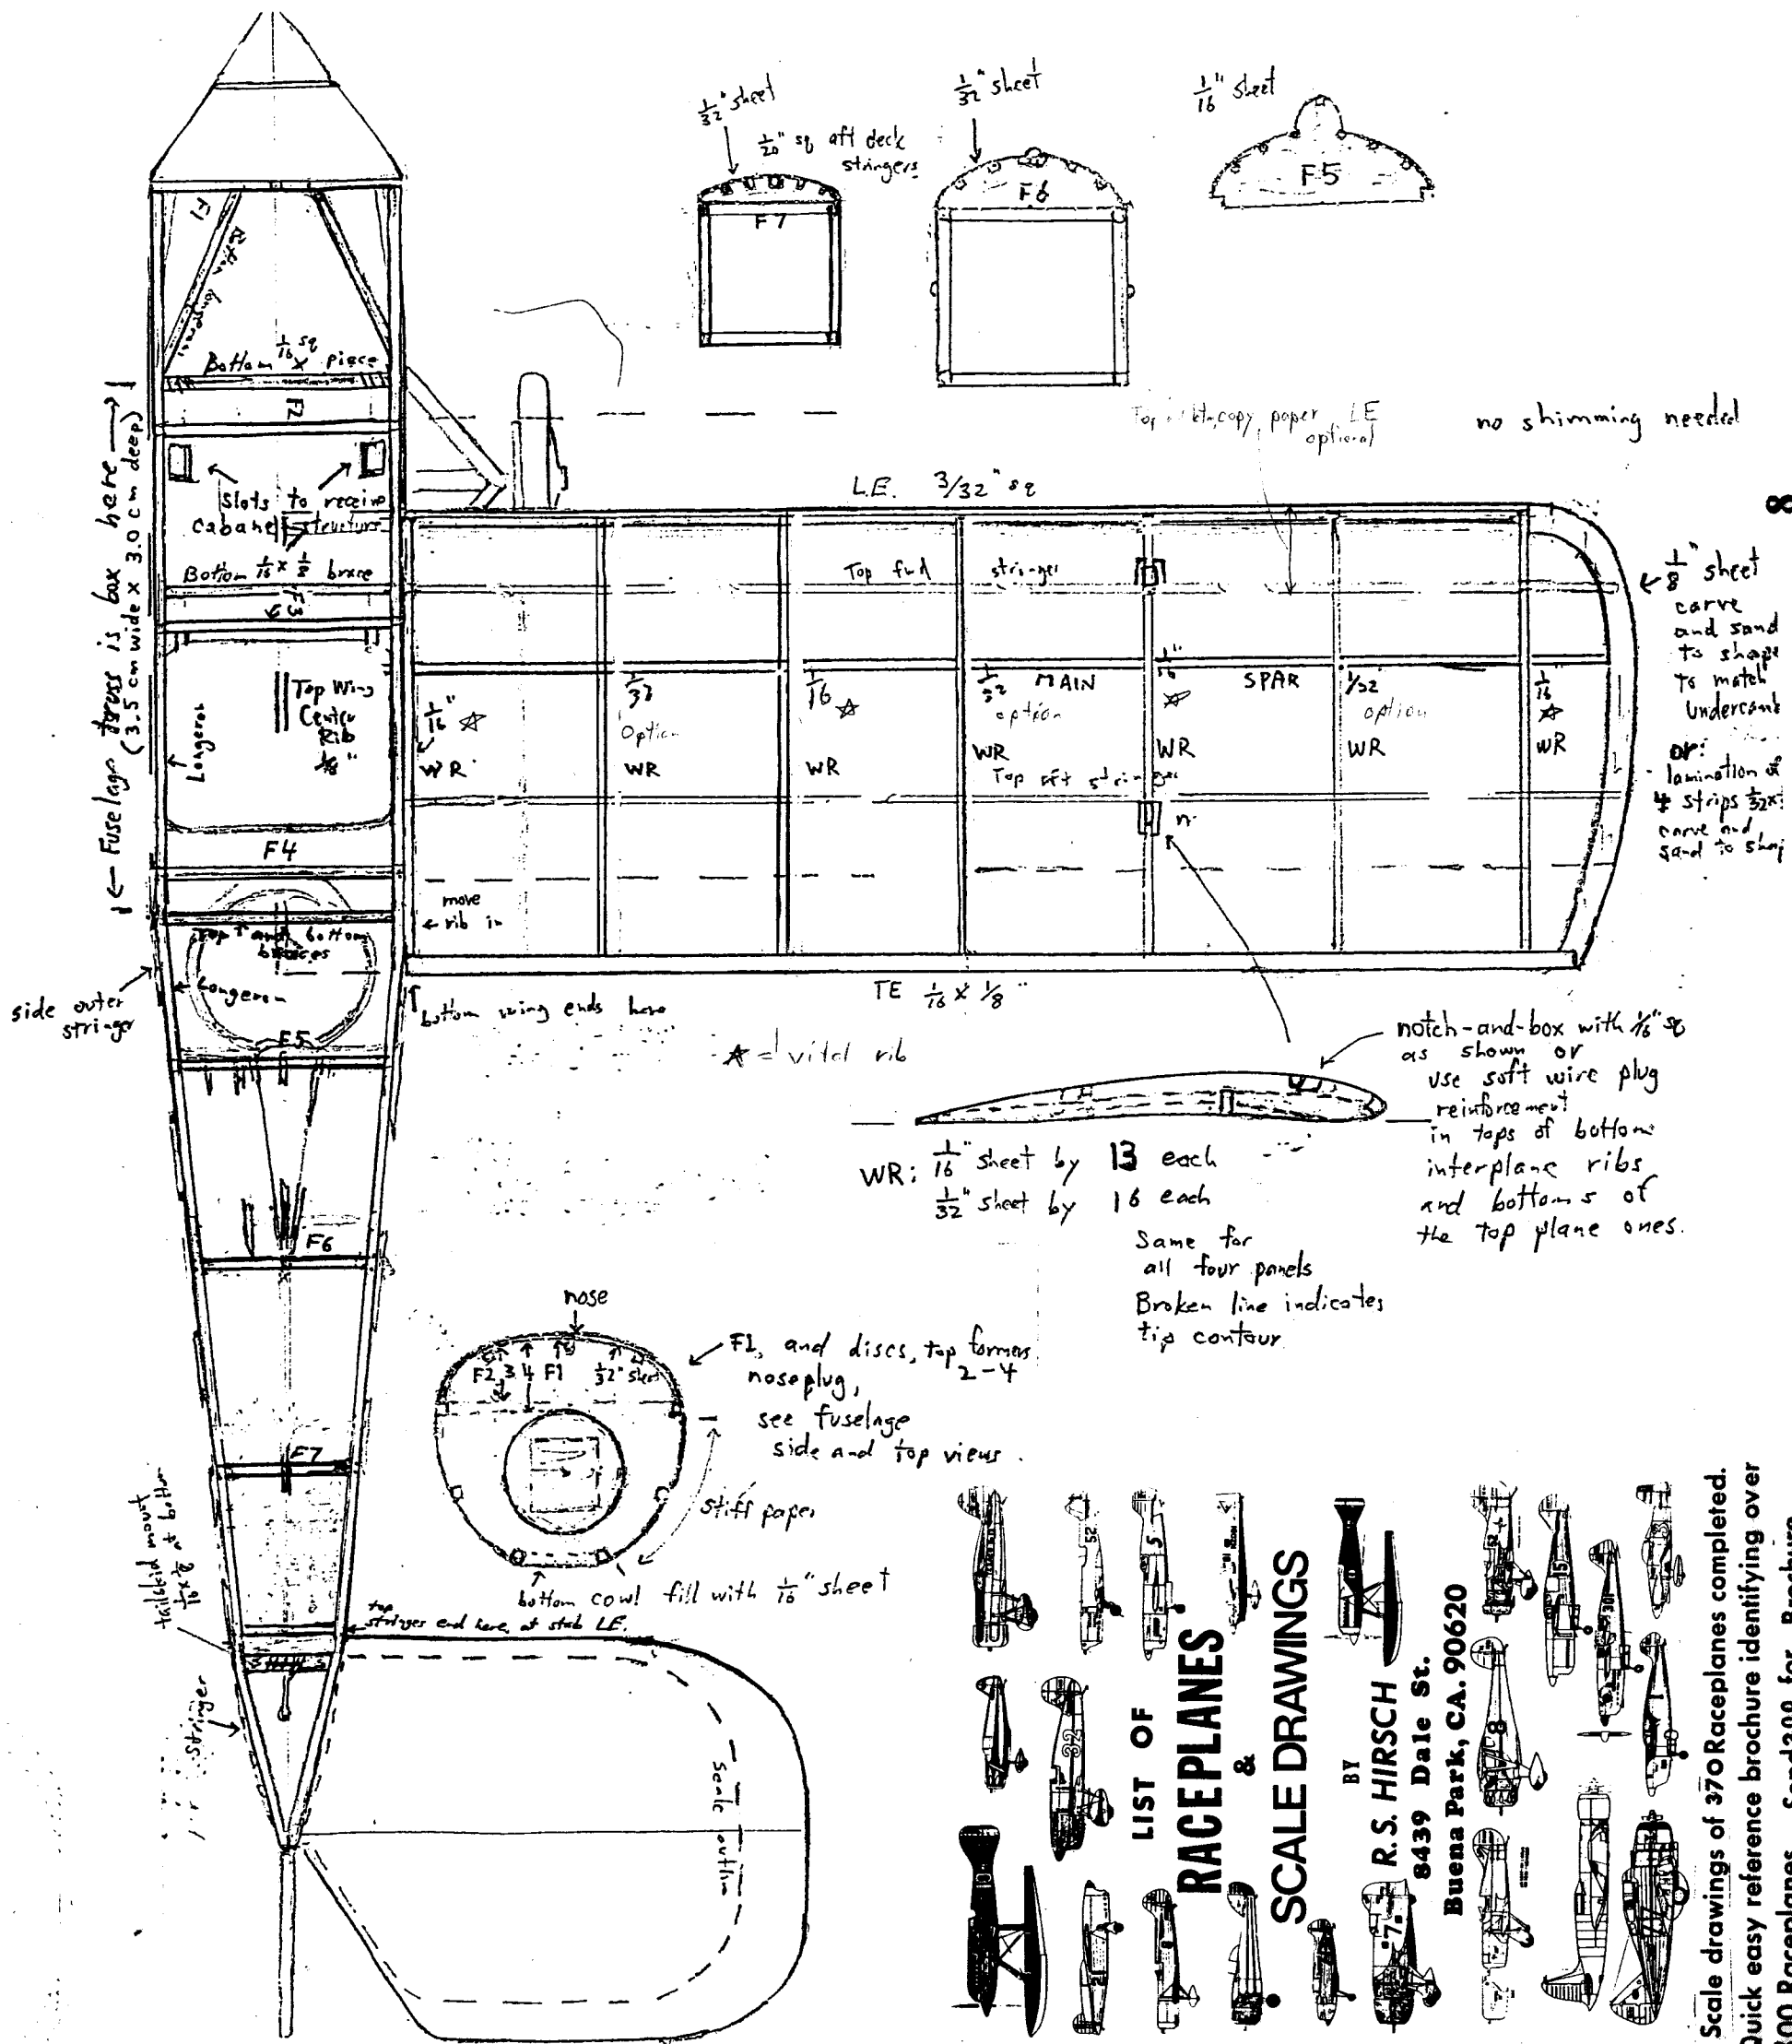 1/32" sheet
1/20" sq aft deck
stringers
F7
1/32" sheet
F6
1/16" sheet
F5
F1
Bottom 1/16 sq
X piece
F2
Slots to receive
Cabane structure
Bottom 1/16 x 1/8 brace
F3
|← Fuselage is box here →|
(3.5 cm wide x 3.0 cm deep)
Longeron
Top Wing
Center
Rib
1/8"
F4
Top and bottom
braces
Longeron
side outer
stringer
F5
F6
F7
tailskid mount
1/16 x 1/8 at bottom
stringer
top
stringers end here, at stab LE.
scale outline
copy paper LE
optional
no shimming needed
L.E. 3/32" sq
Top fwd stringer
1/16" ☆
WR
1/32
Option
WR
1/16 ☆
WR
1/32
option
WR
MAIN SPAR
1/16"
☆
WR
1/32
option
WR
1/16
☆
WR
Top aft stringer
move
← rib in
TE 1/16 x 1/8"
bottom wing ends here
☆ = vital rib
8
1/8" sheet
carve
and sand
to shape
to match
or:
lamination of
4 strips 1/32x
carve and
sand to
notch-and-box with 1/16" sq
as shown or
use soft wire plug
reinforcement
in tops of bottom
interplane ribs
and bottoms of
the top plane ones.
WR: 1/16" sheet by 13 each
1/32" sheet by 16 each
Same for
all four panels
Broken line indicates
tip contour
nose
F2 3 4 F1 1/32" sheet
F1, and discs, top formers
2-4
noseplug,
see fuselage
side and top views.
stiff paper
bottom cowl fill with 1/16" sheet
LIST OF
RACEPLANES
&
SCALE DRAWINGS
BY
R.S. HIRSCH
8439 Dale St.
Buena Park, CA. 90620
Scale drawings of 370 Raceplanes completed.
Quick easy reference brochure identifying over
Raceplanes. Send for Brochure